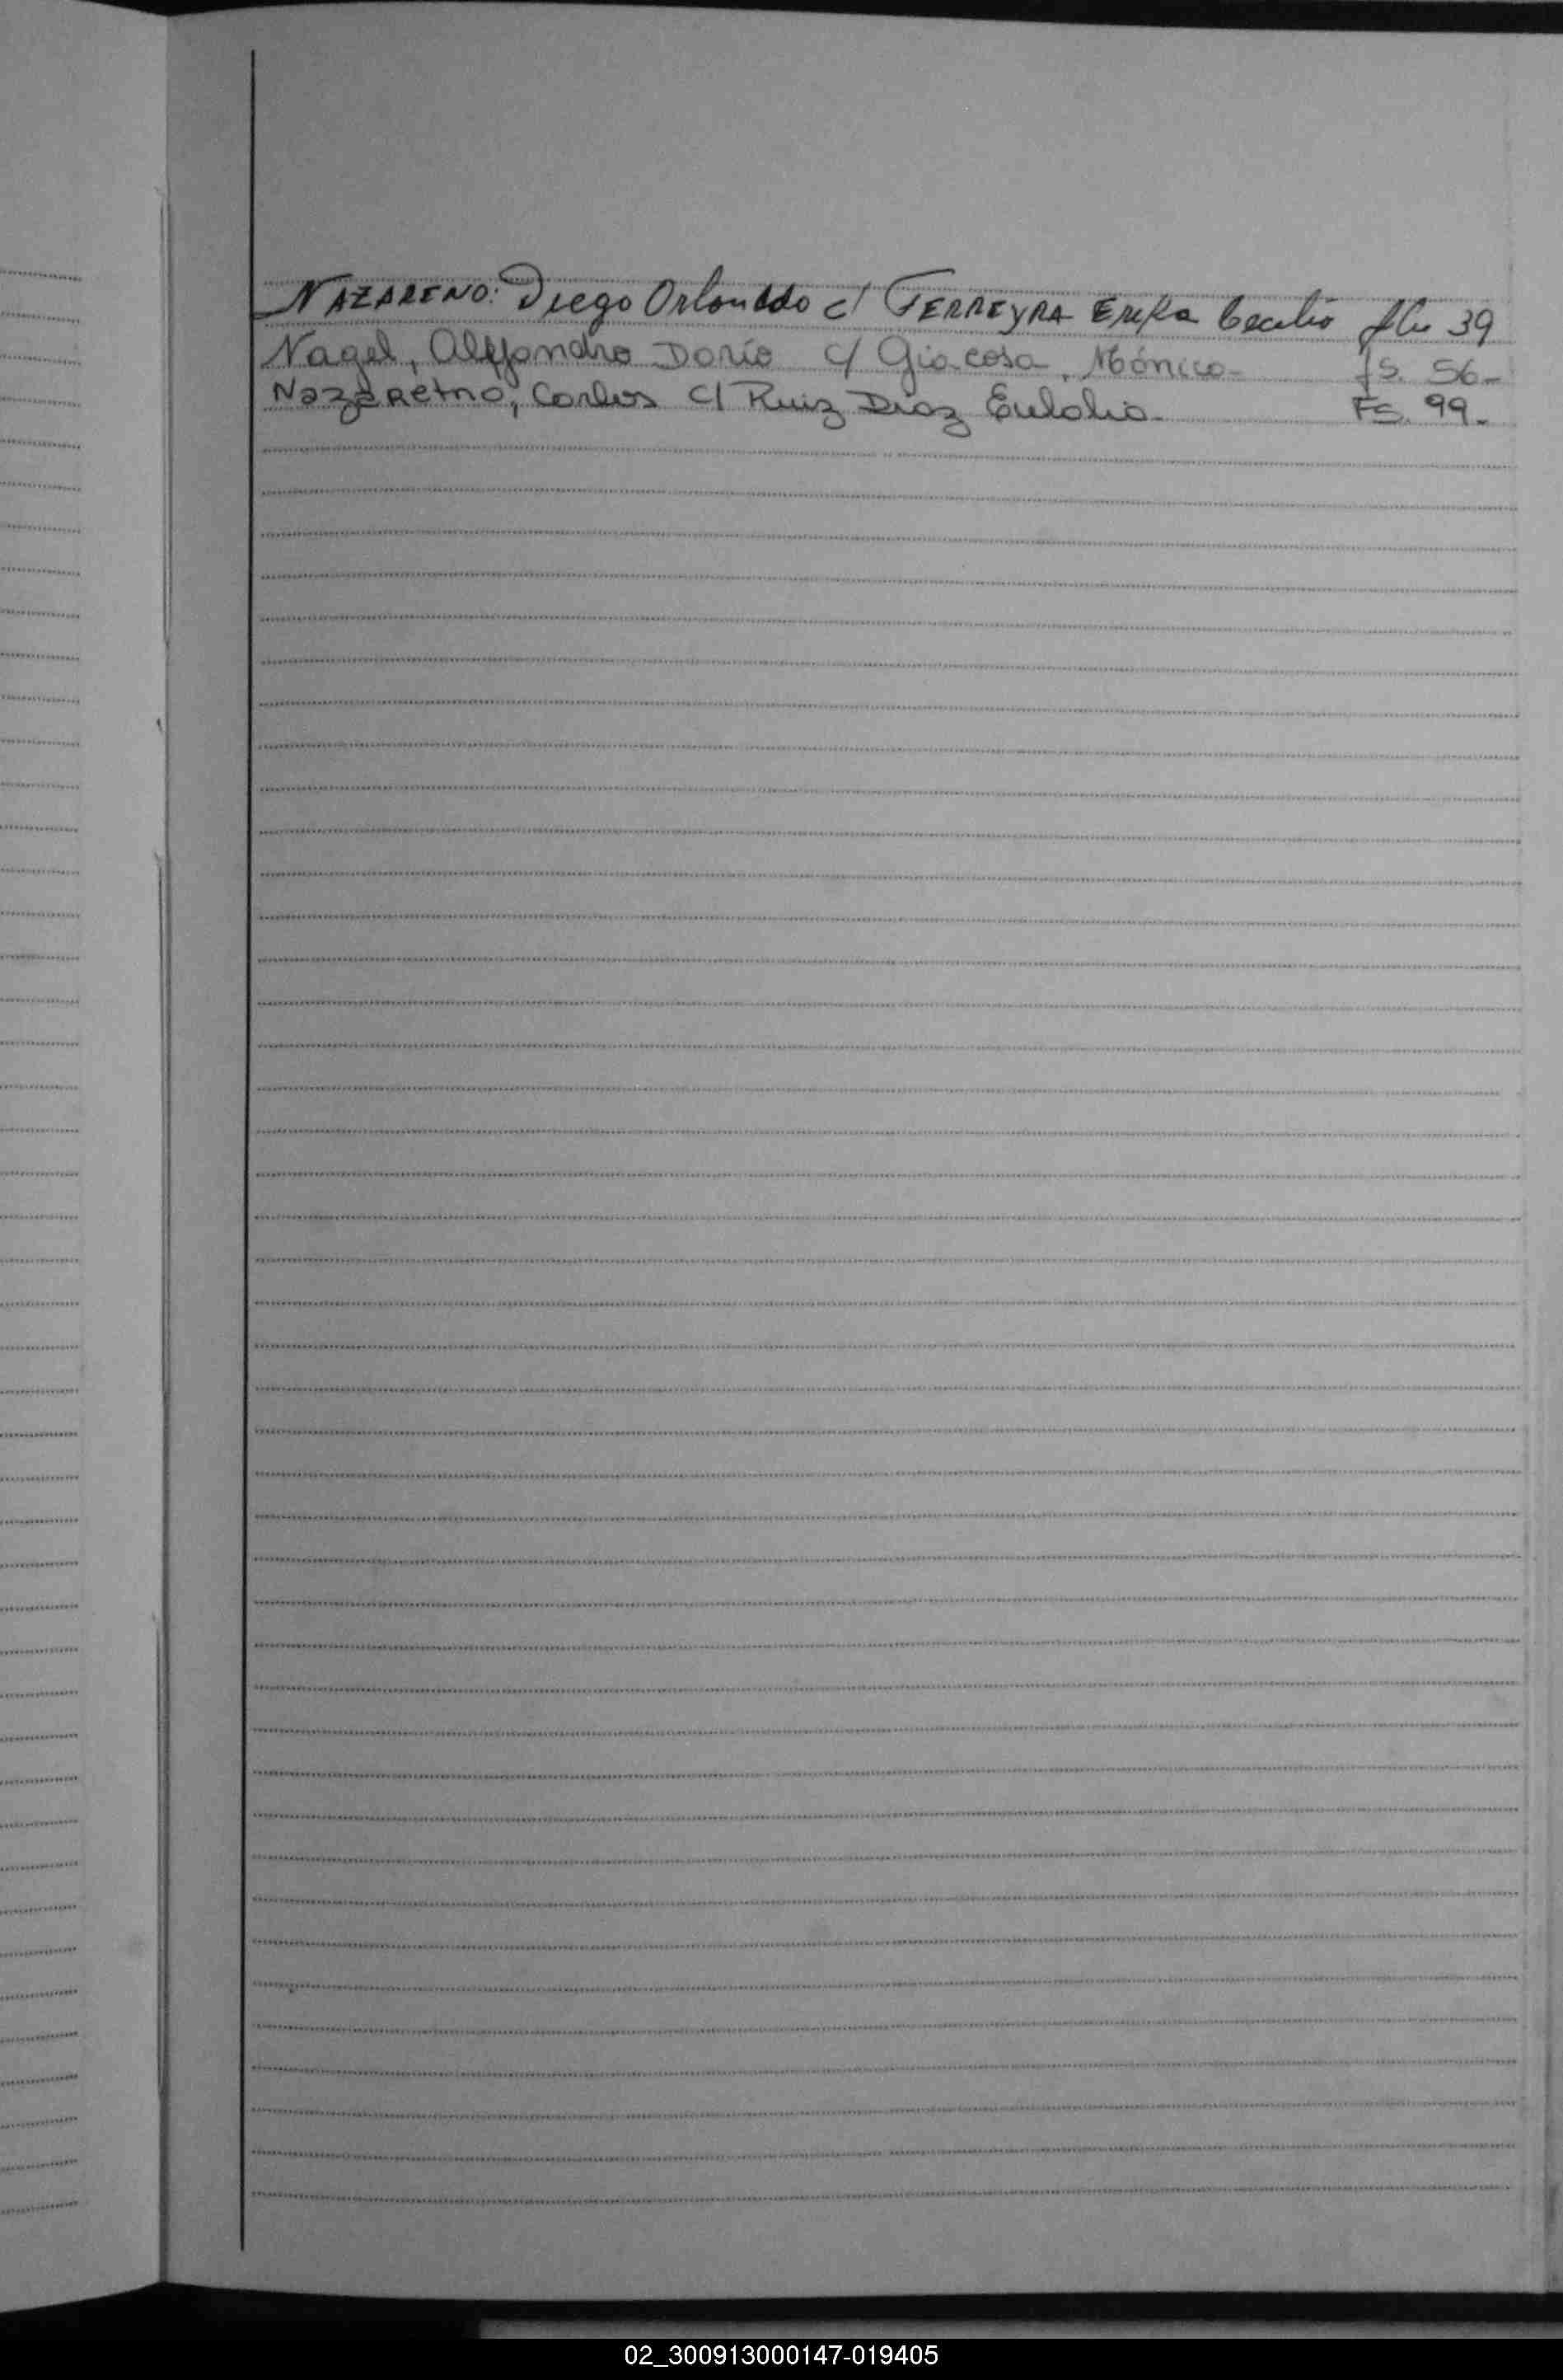 NAZARENO: Diego Orlando c/ FERREYRA Erika Cecilia flio 39
Nagel, Alejandro Darío c/ Giacosa, Mónica- fs. 56-
Nazareno, Carlos c/ Ruiz Díaz Eulalia- Fs. 99-
02_300913000147-019405